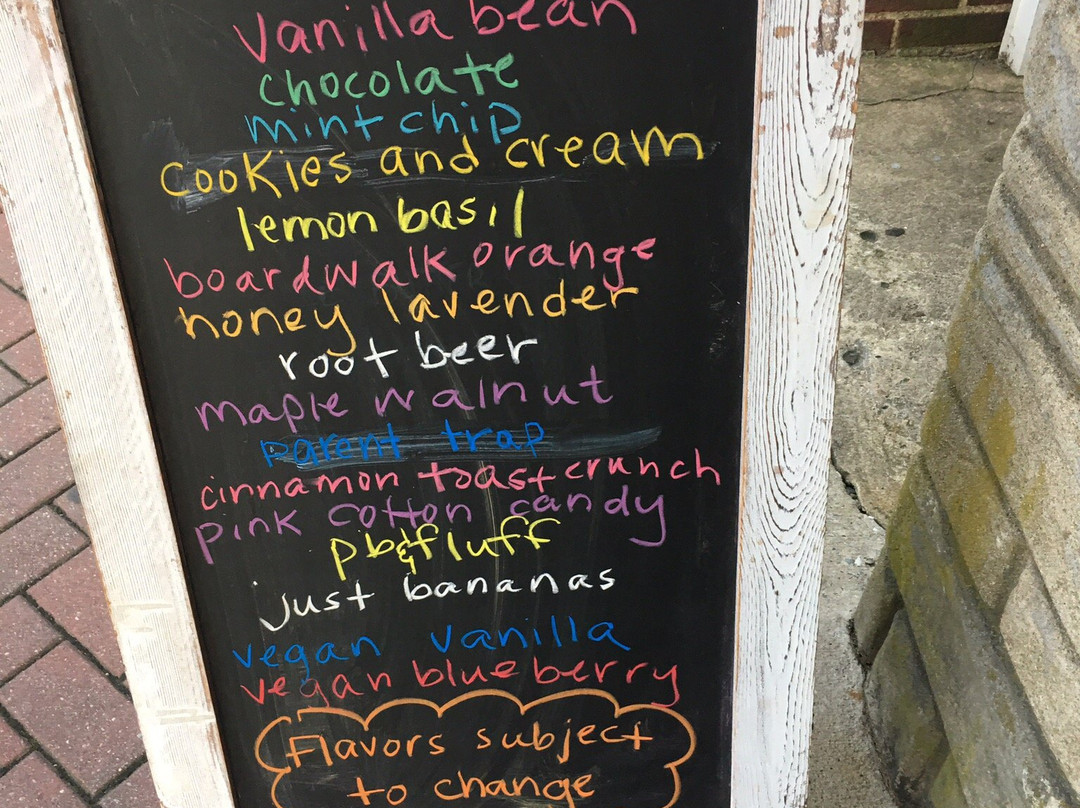 vanilla bean
chocolate
mint chip
cookies and cream
lemon basil
boardwalk orange
honey lavender
root beer
maple walnut
parent trap
cinnamon toast crunch
pink cotton candy
pb&fluff
just bananas
vegan vanilla
vegan blueberry
Flavors subject
to change